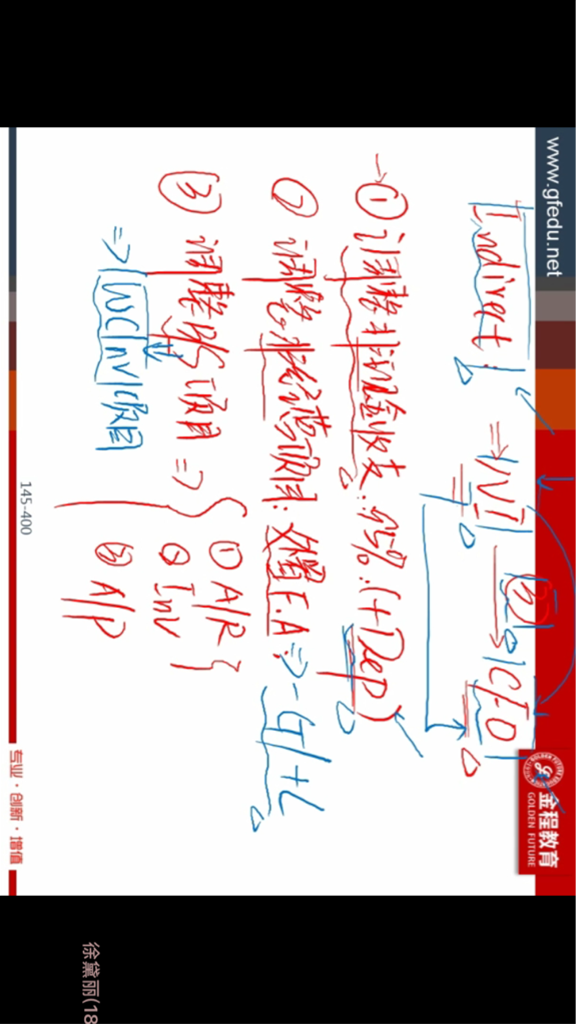 www.gfedu.net
Indirect: ⇒ NI → CFO
(3)
→ ① 调整非现金收支: 95%: (+Dep)
② 调整非经营项目: 处置F.A ⇒ -G/+L
③ 调整B/S项目 ⇒ { ① A/R
② Inv
③ A/P
⇒ WCInv项目
145-400
金程教育
GOLDEN FUTURE
专业·创新·增值
徐黛丽(18